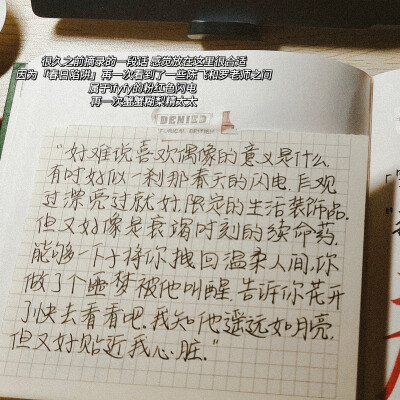 很久之前摘录的一段话 感觉放在这里很合适
因为「春日陷阱」再一次看到了一些陈飞和罗老师之间
属于fyfy的粉红色闪电
再一次蟹蟹糊梨精太太
DENIED
"好难说喜欢偶像的意义是什么
有时好似一刹那春天的闪电，壮观
过漂亮过就好，限定的生活装饰品。
但又好像是衰竭时刻的续命药，
能够一下子将你拽回温柔人间，你
做了个噩梦被他叫醒，告诉你花开
了快去看看吧。我知他遥远如月亮，
但又好贴近我心脏。"